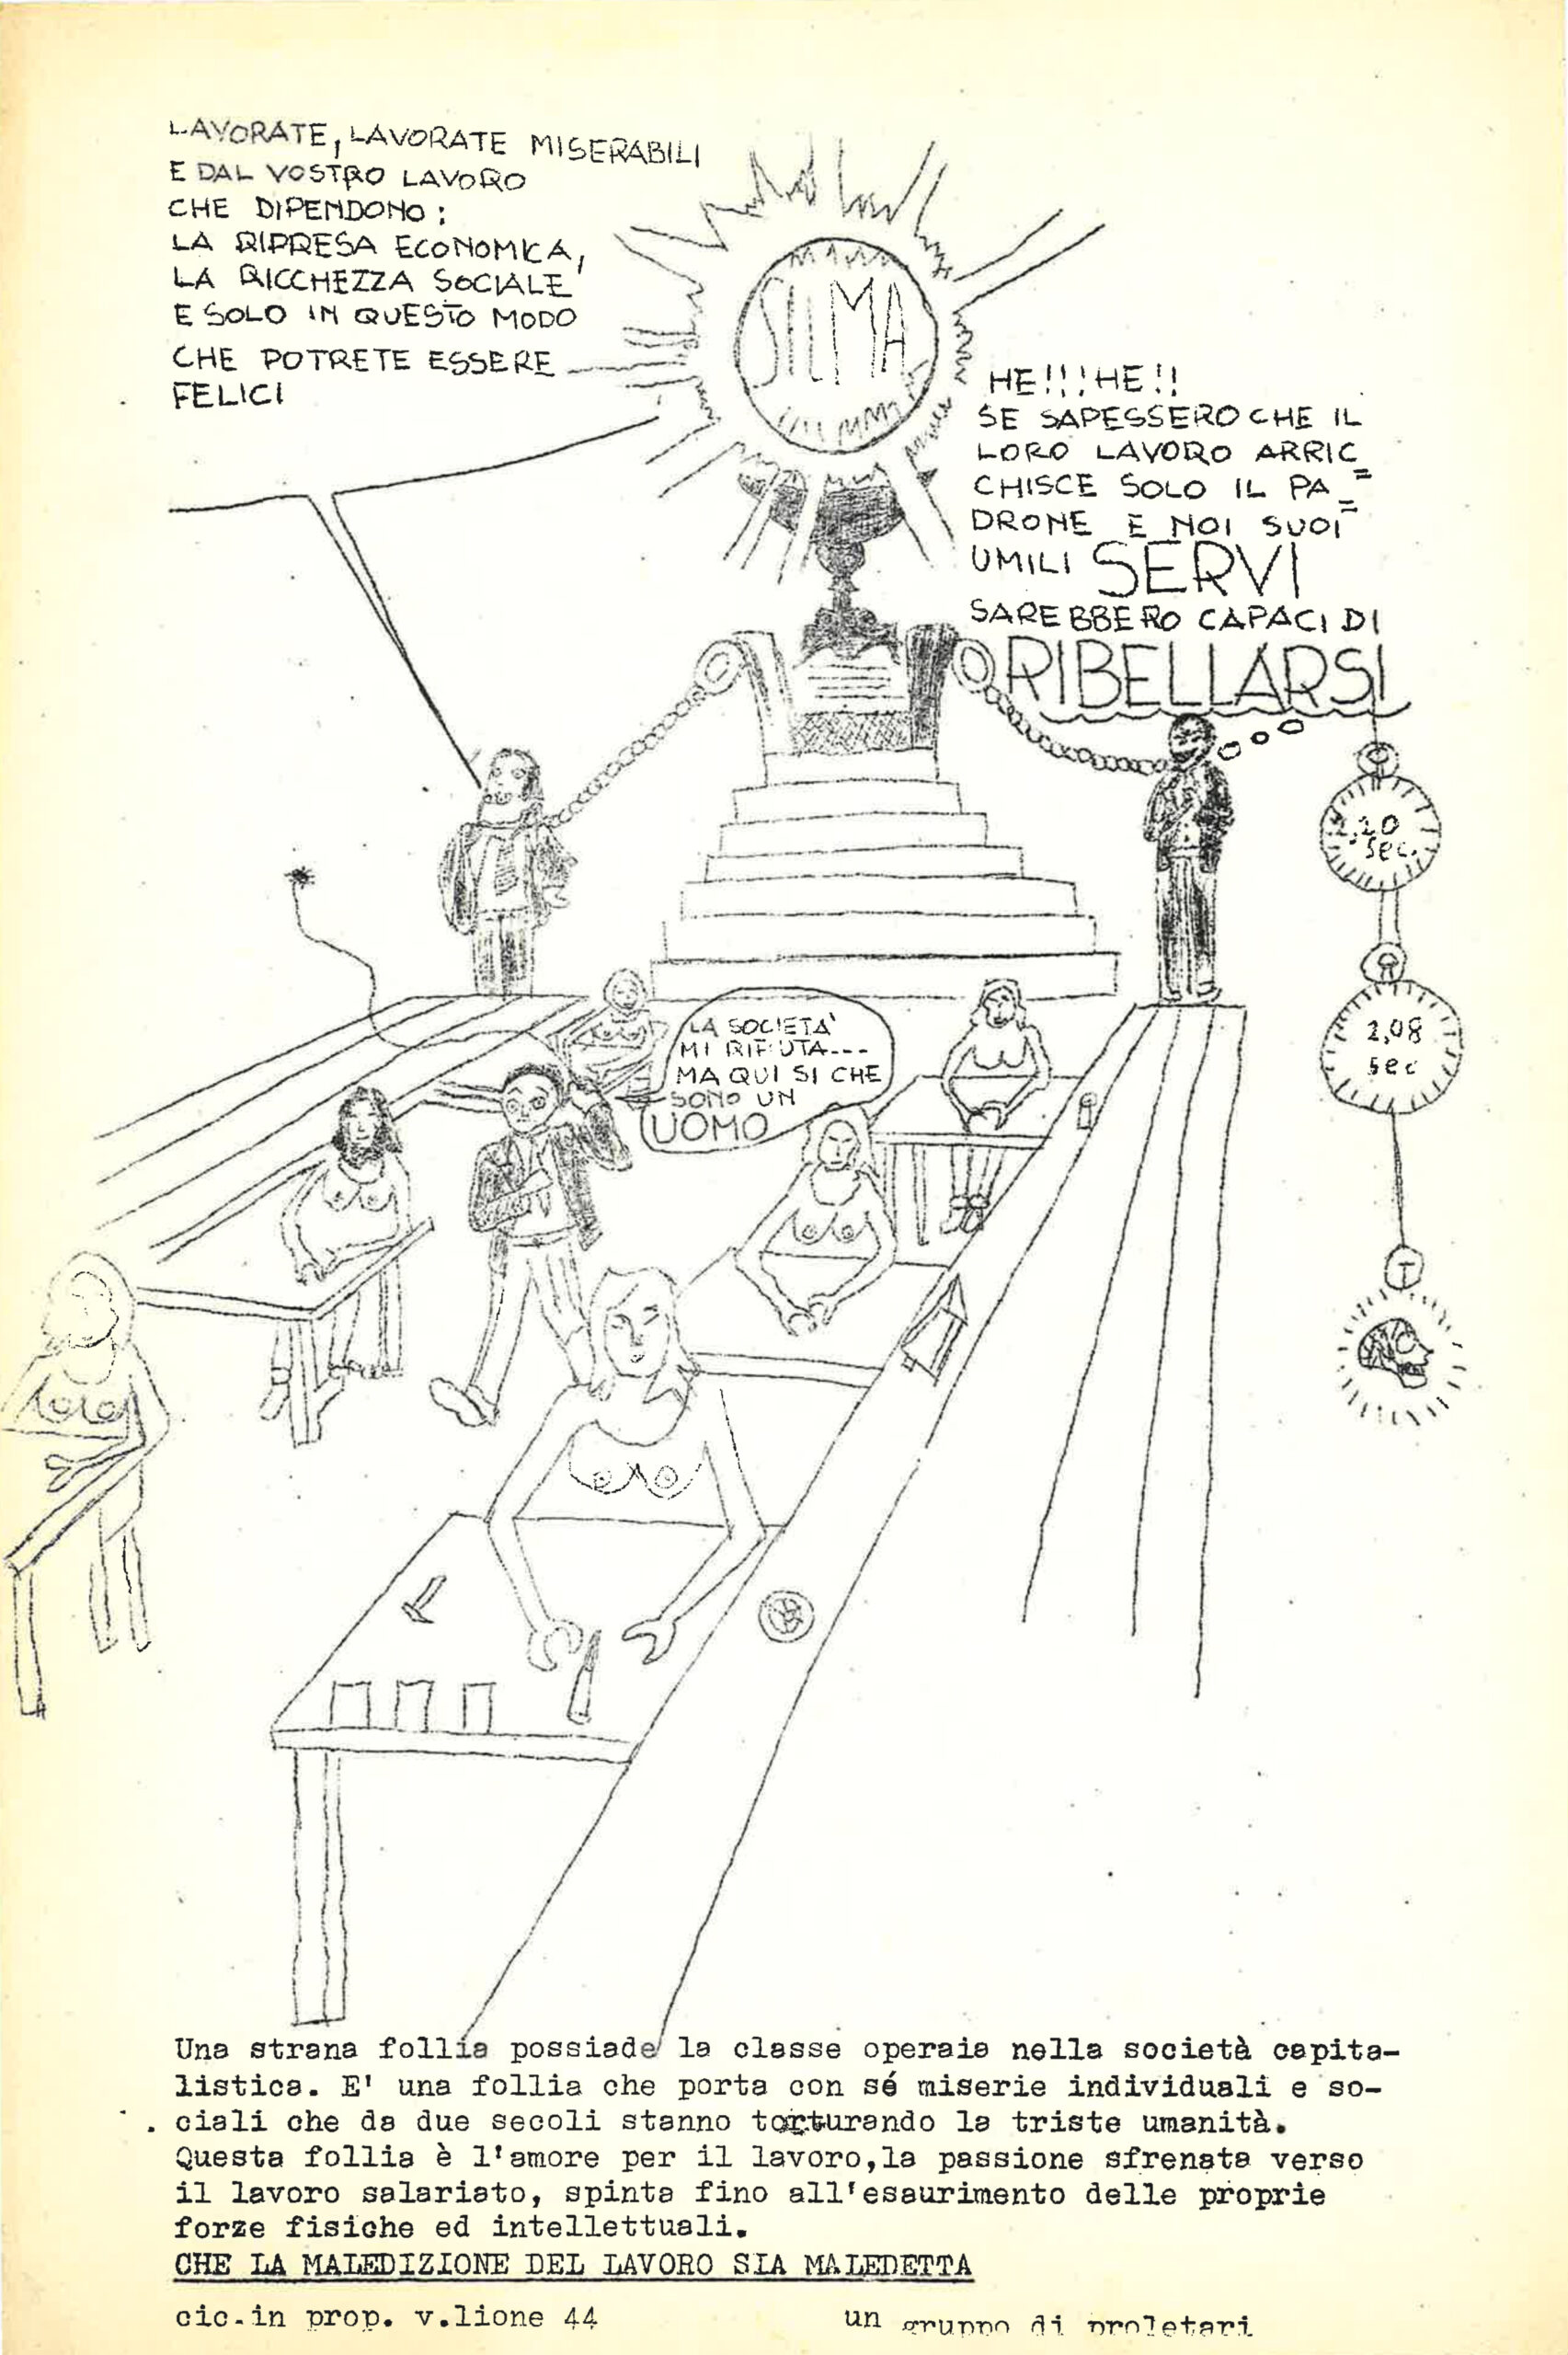 LAVORATE, LAVORATE MISERABILI
E DAL VOSTRO LAVORO
CHE DIPENDONO:
LA RIPRESA ECONOMICA,
LA RICCHEZZA SOCIALE
E SOLO IN QUESTO MODO
CHE POTRETE ESSERE
FELICI
SILMA
HE!!!HE!!
SE SAPESSERO CHE IL
LORO LAVORO ARRIC
CHISCE SOLO IL PA=
DRONE E NOI SUOI=
UMILI SERVI
SAREBBERO CAPACI DI
RIBELLARSI
2,20
sec.
2,08
sec
LA SOCIETA'
MI RIFIUTA---
MA QUI SI CHE
SONO UN
UOMO
Una strana follia possiade la classe operaia nella società capita-
listica. E' una follia che porta con sé miserie individuali e so-
ciali che da due secoli stanno torturando la triste umanità.
Questa follia è l'amore per il lavoro,la passione sfrenata verso
il lavoro salariato, spinta fino all'esaurimento delle proprie
forze fisiche ed intellettuali.
CHE LA MALEDIZIONE DEL LAVORO SIA MALEDETTA
cic.in prop. v.lione 44 un gruppo di proletari